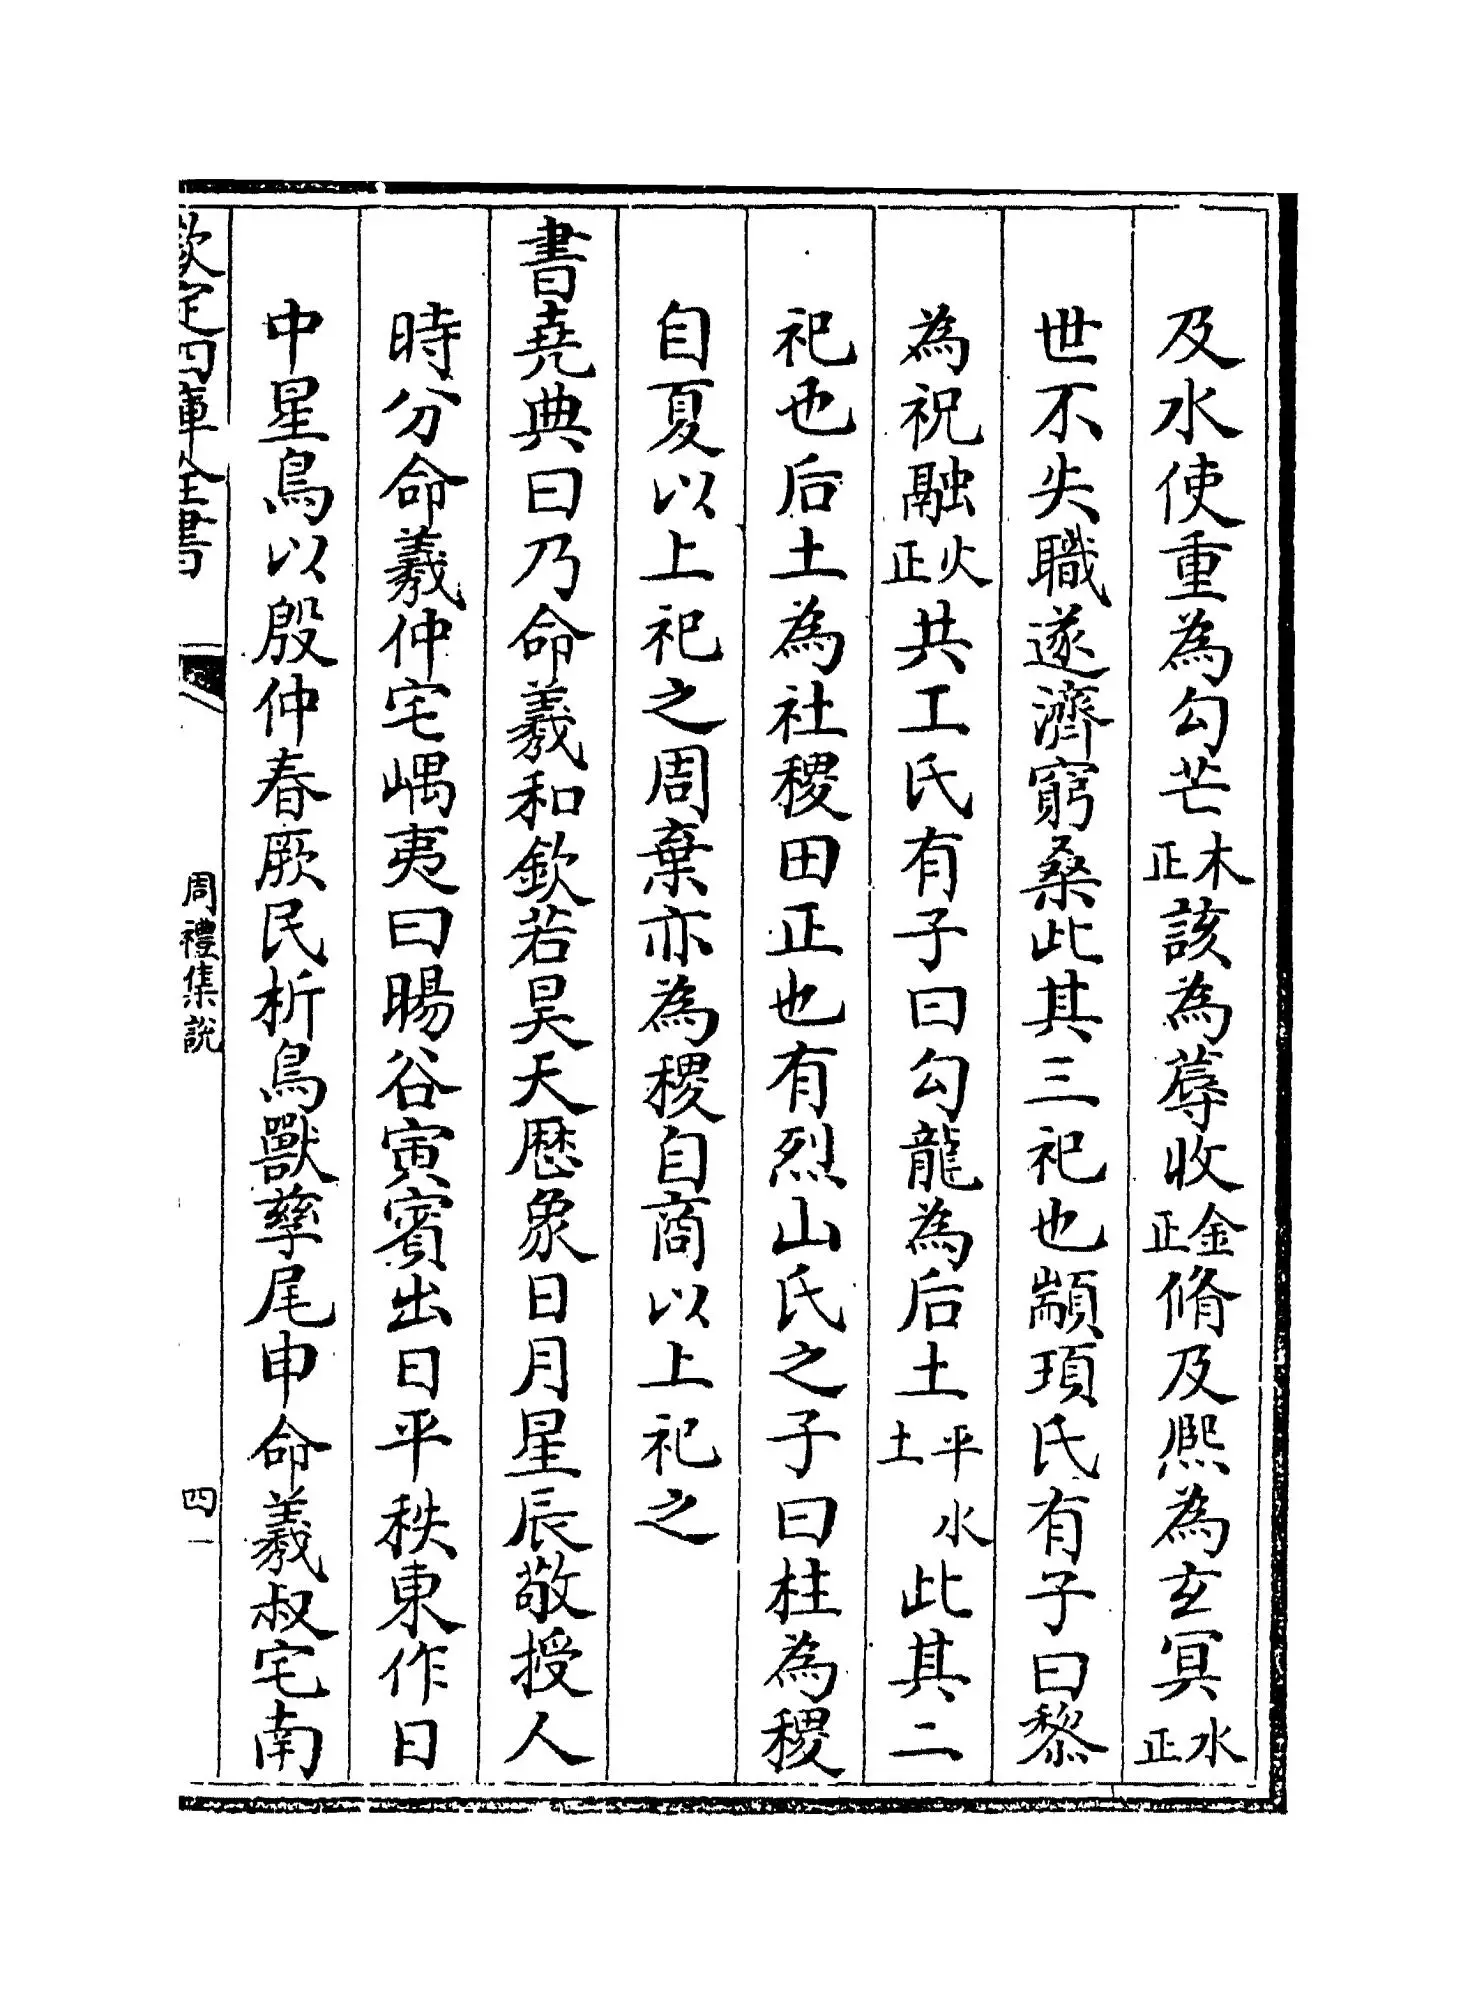 及水使重為勾芒木正該為蓐收金正脩及熈為玄冥水正
世不失職遂濟窮桑此其三祀也顓頊氏有子曰黎
為祝融火正共工氏有子曰勾龍為后土平水土此其二
祀也后土為社稷田正也有烈山氏之子曰柱為稷
自夏以上祀之周棄亦為稷自商以上祀之
書堯典曰乃命羲和欽若昊天厯象日月星辰敬授人
時分命羲仲宅嵎夷曰暘谷寅賓出日平秩東作日
中星鳥以殷仲春厥民析鳥獸孳尾申命羲叔宅南
欽定四庫全書
周禮集說
四一